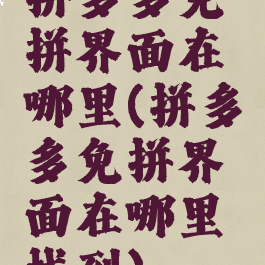 拼多多免
拼界面在
哪里(拼多
多免拼界
面在哪里
找到)